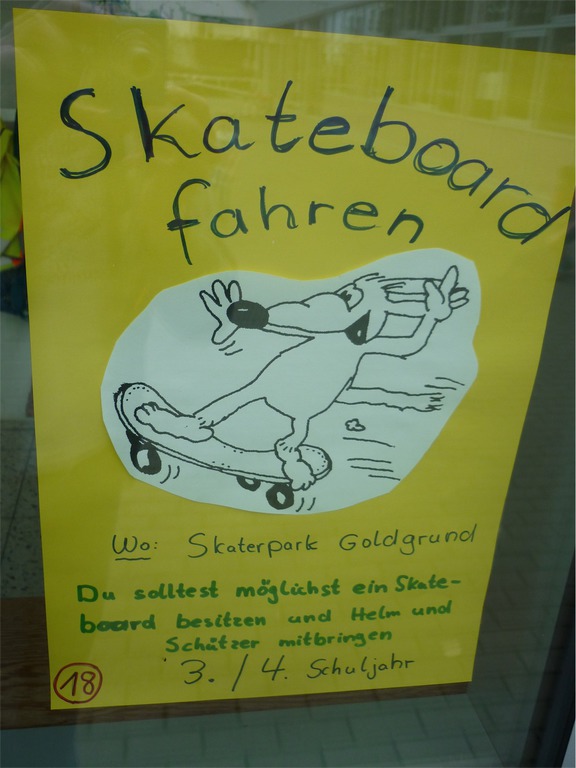 Skateboard
fahren
Wo: Skaterpark Goldgrund
Du solltest möglichst ein Skate-
board besitzen und Helm und
Schützer mitbringen
3. / 4. Schuljahr
18